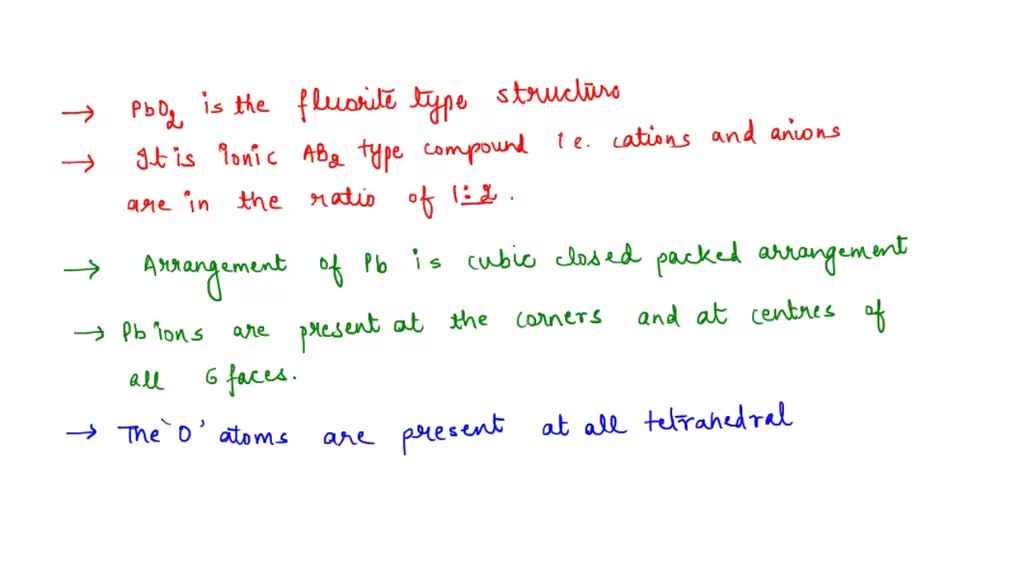 → PbO2 is the fluorite type structure
→ It is ionic AB2 type compound i.e. cations and anions
are in the ratio of 1:2.
→ Arrangement of Pb is cubic closed packed arrangement
→ Pb ions are present at the corners and at centres of
all 6 faces.
→ The 'O' atoms are present at all tetrahedral